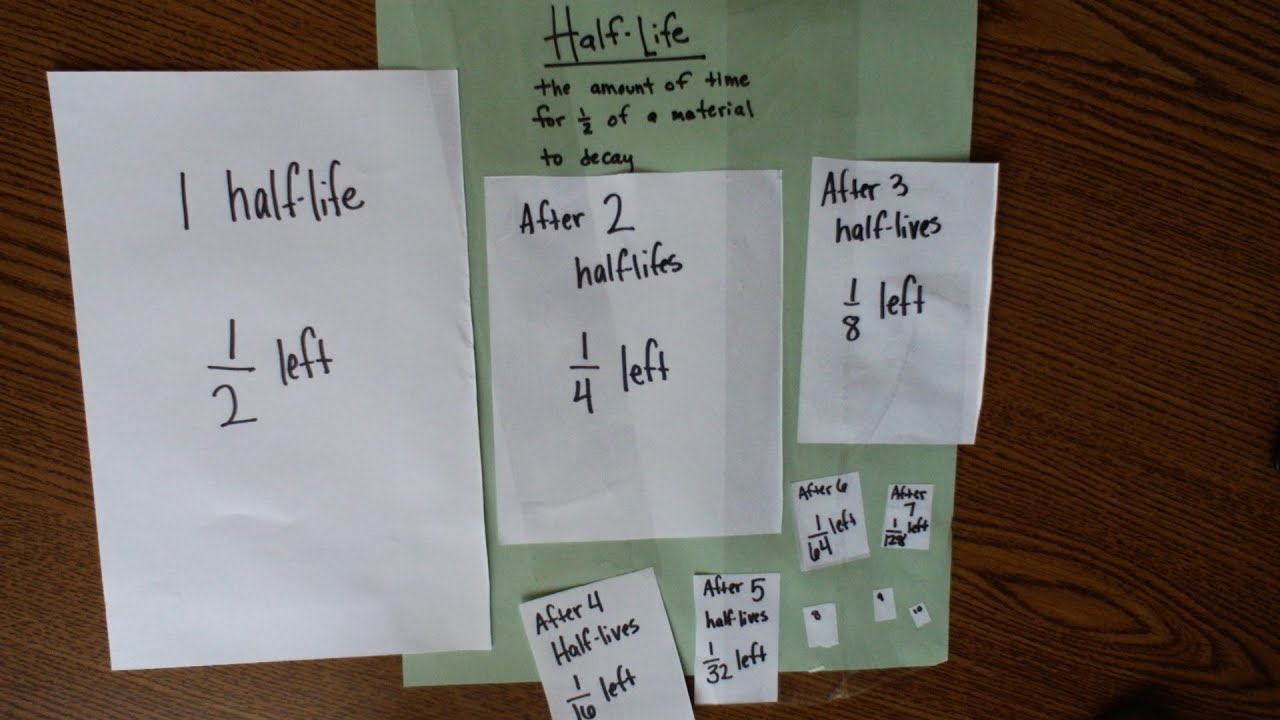 Half-Life
the amount of time
for 1/2 of a material
to decay
1 half-life
1/2 left
After 2
halflifes
1/4 left
After 3
half-lives
1/8 left
After 4
Half-lives
1/16 left
After 5
half-lives
1/32 left
After 6
1/64 left
After
7
1/128 left
8
9
10